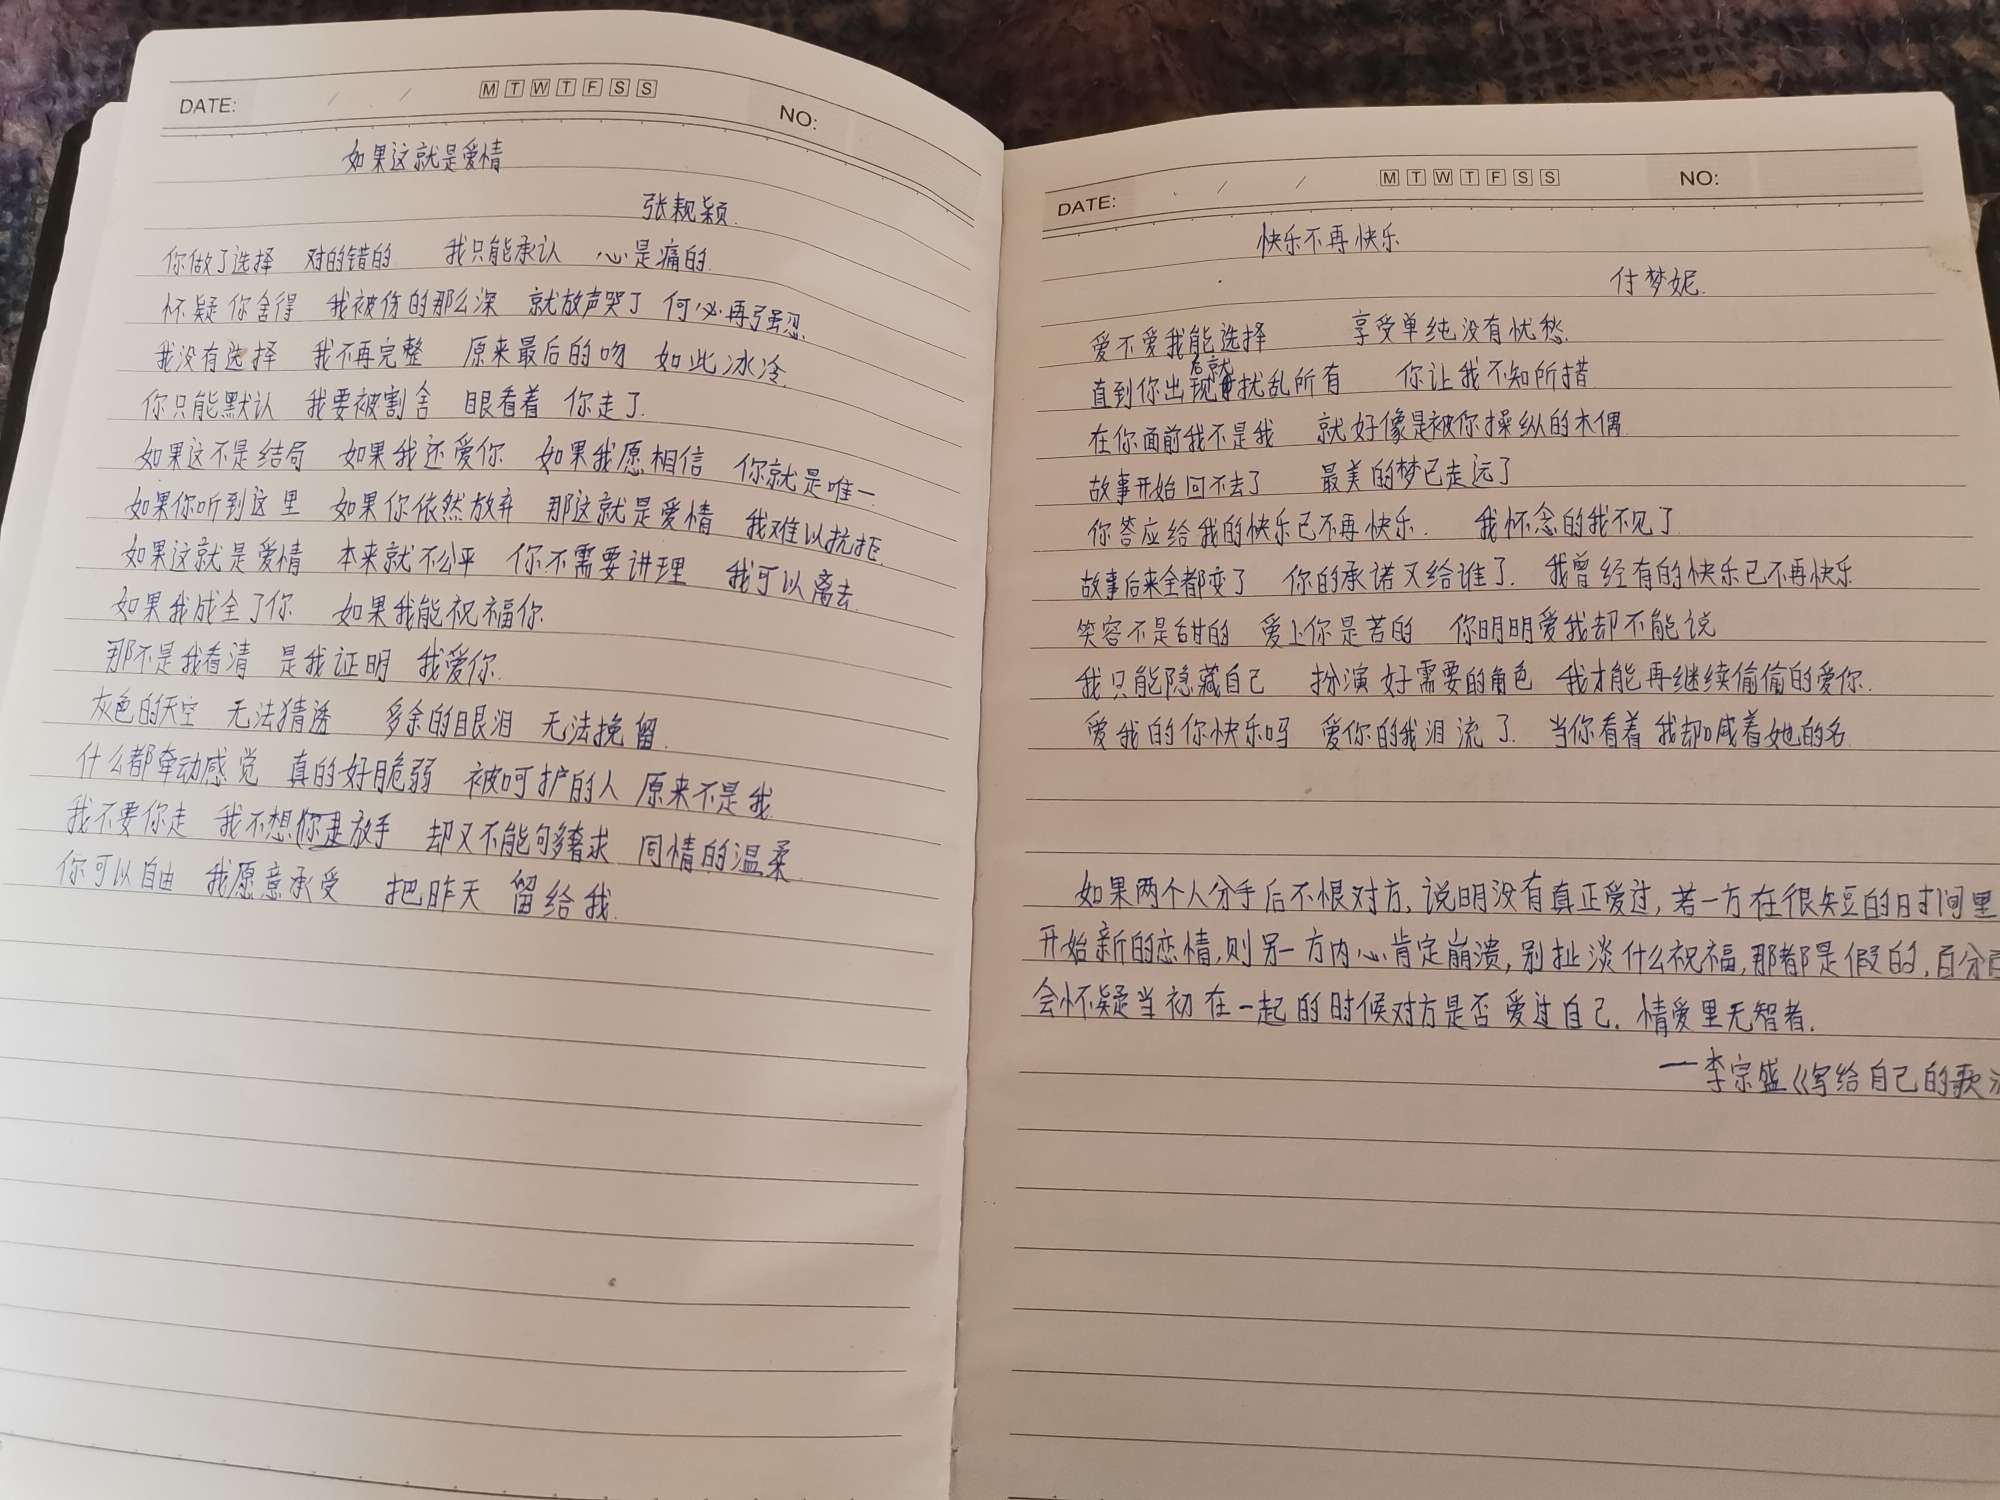 DATE: / / M T W T F S S NO:
如果这就是爱情
张靓颖
你做了选择 对的错的 我只能承认 心是痛的
怀疑你舍得 我被伤的那么深 就放声哭了 何必再强忍
我没有选择 我不再完整 原来最后的吻 如此冰冷
你只能默认 我要被割舍 眼看着 你走了
如果这不是结局 如果我还爱你 如果我愿相信 你就是唯一
如果你听到这里 如果你依然放弃 那这就是爱情 我难以抗拒
如果这就是爱情 本来就不公平 你不需要讲理 我可以离去
如果我成全了你 如果我能祝福你
那不是我看清 是我证明 我爱你
灰色的天空 无法猜透 多余的眼泪 无法挽留
什么都牵动感觉 真的好脆弱 被呵护的人 原来不是我
我不要你走 我不想放手 却又不能够奢求 同情的温柔
你可以自由 我愿意承受 把昨天 留给我
DATE: / / M T W T F S S NO:
快乐不再快乐
付梦妮
爱不爱我能选择 享受单纯没有忧愁
直到你出现后就扰乱所有 你让我不知所措
在你面前我不是我 就好像是被你操纵的木偶
故事开始回不去了 最美的梦已走远了
你答应给我的快乐已不再快乐. 我怀念的我不见了
故事后来全都变了 你的承诺又给谁了. 我曾经有的快乐已不再快乐
笑容不是甜的 爱上你是苦的 你明明爱我却不能说
我只能隐藏自己 扮演好需要的角色 我才能再继续偷偷的爱你.
爱我的你快乐吗 爱你的我泪流了. 当你看着我却喊着她的名
如果两个人分手后不恨对方,说明没有真正爱过,若一方在很短的时间里
开始新的恋情,则另一方内心肯定崩溃,别扯淡什么祝福,那都是假的,百分百
会怀疑当初在一起的时候对方是否爱过自己.情爱里无智者.
—李宗盛《写给自己的歌